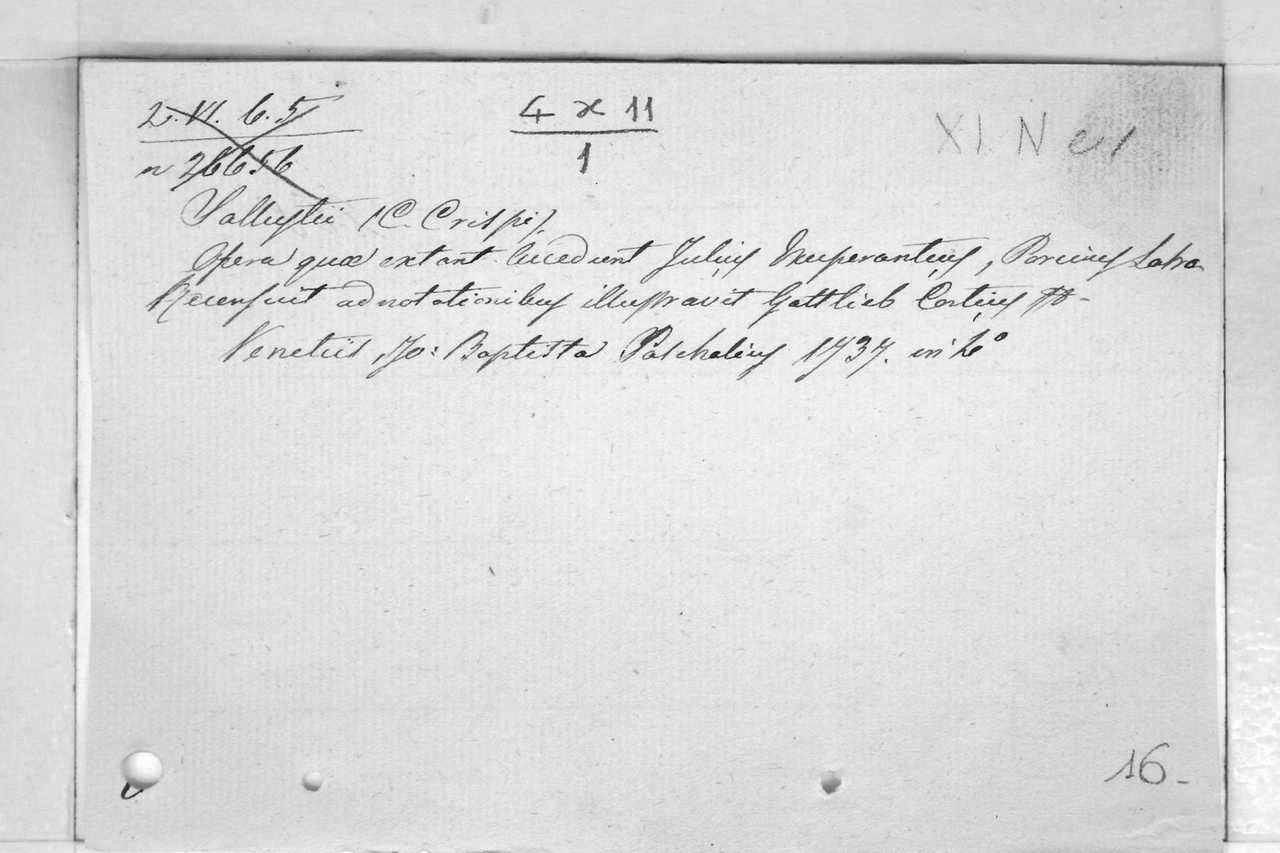 2. VI. 6. 5
4 x 11
1
XI N e 1
n 26656
Sallustii (C. Crispi)
Opera quæ extant. Accedunt Julius Exuperantius, Porcius Latro
Recensuit adnotationibus illustravit Gottlieb Cortius
Venetiis, Jo: Baptista Paschalius 1737. in 4°
16-